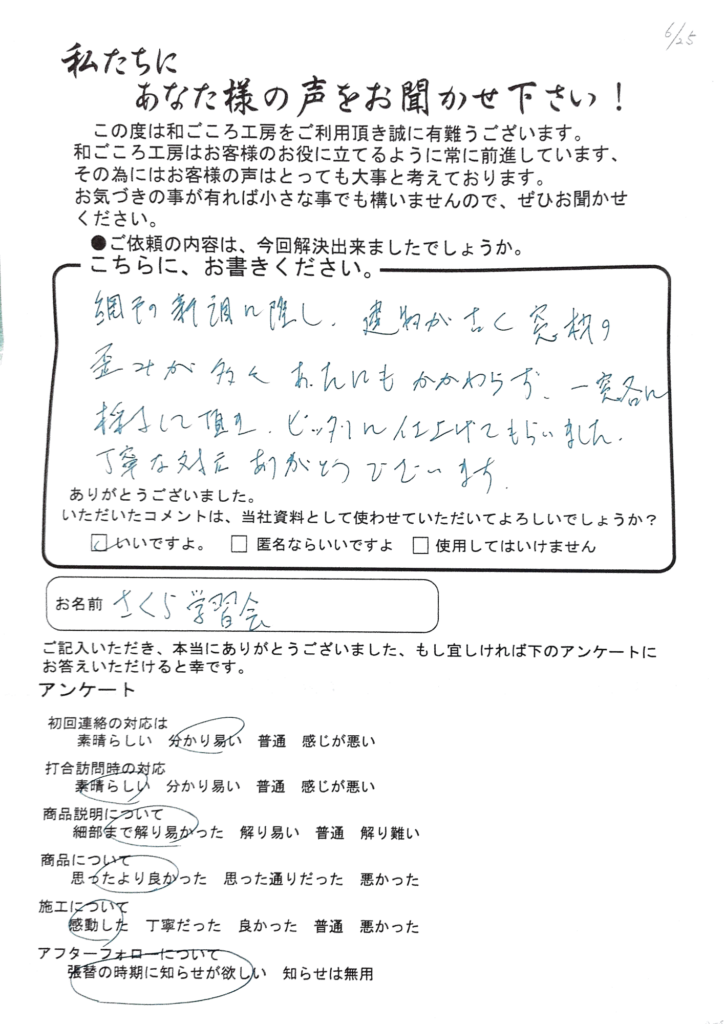 6/25
私たちに
あなた様の声をお聞かせ下さい！
この度は和ごころ工房をご利用頂き誠に有難うございます。
和ごころ工房はお客様のお役に立てるように常に前進しています、
その為にはお客様の声はとっても大事と考えております。
お気づきの事が有れば小さな事でも構いませんので、ぜひお聞かせ
ください。
●ご依頼の内容は、今回解決出来ましたでしょうか。
こちらに、お書きください。
網戸の新調に際し、建物が古く窓枠の
歪みが多くあったにもかかわらず、一窓各に
採寸して頂き、ピッタリに仕上げてもらいました。
丁寧な対応ありがとうございます。
ありがとうございました。
いただいたコメントは、当社資料として使わせていただいてよろしいでしょうか？
いいですよ。 匿名ならいいですよ 使用してはいけません
お名前 さくら学習会
ご記入いただき、本当にありがとうございました、もし宜しければ下のアンケートに
お答えいただけると幸です。
アンケート
初回連絡の対応は
素晴らしい 分かり易い 普通 感じが悪い
打合訪問時の対応
素晴らしい 分かり易い 普通 感じが悪い
商品説明について
細部まで解り易かった 解り易い 普通 解り難い
商品について
思ったより良かった 思った通りだった 悪かった
施工について
感動した 丁寧だった 良かった 普通 悪かった
アフターフォローについて
張替の時期に知らせが欲しい 知らせは無用